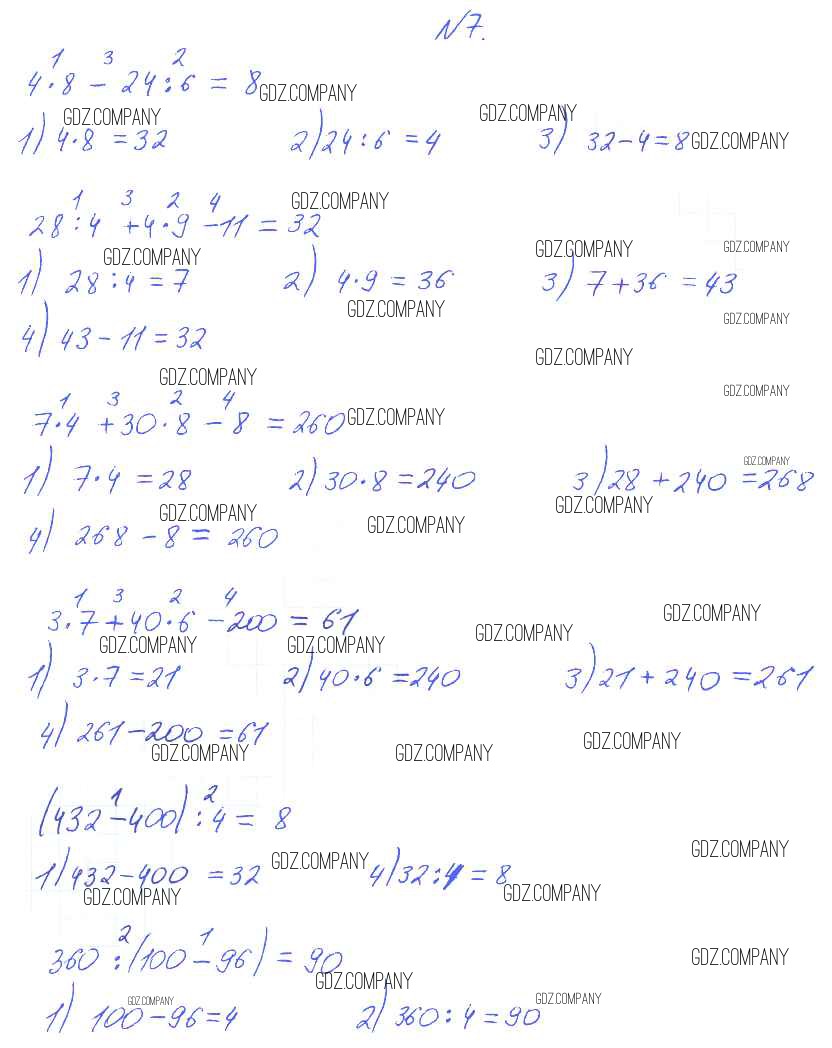 N7.
1 3 2
4·8 - 24:6 = 8 GDZ.COMPANY
GDZ.COMPANY GDZ.COMPANY
1) 4·8 = 32 2) 24:6 = 4 3) 32-4=8 GDZ.COMPANY
1 3 2 4 GDZ.COMPANY
28:4 +4·9 -11 = 32
GDZ.COMPANY GDZ.COMPANY GDZ.COMPANY
1) 28:4 = 7 2) 4·9 = 36 3) 7+36 = 43
GDZ.COMPANY GDZ.COMPANY
4) 43-11=32
GDZ.COMPANY
GDZ.COMPANY GDZ.COMPANY
1 3 2 4
7·4 +30·8 -8 = 260 GDZ.COMPANY
GDZ.COMPANY
1) 7·4 = 28 2) 30·8 = 240 3) 28 + 240 = 268
GDZ.COMPANY GDZ.COMPANY GDZ.COMPANY
4) 268 - 8 = 260
1 3 2 4
3·7+40·6 -200 = 61 GDZ.COMPANY
GDZ.COMPANY GDZ.COMPANY GDZ.COMPANY
1) 3·7=21 2) 40·6 = 240 3) 21+240=261
4) 261-200 =61
GDZ.COMPANY GDZ.COMPANY GDZ.COMPANY
1 2
(432-400):4 = 8
GDZ.COMPANY GDZ.COMPANY
1) 432-400 = 32 4) 32:4 = 8
GDZ.COMPANY GDZ.COMPANY
2 1
360:(100-96) = 90 GDZ.COMPANY
GDZ.COMPANY
GDZ.COMPANY GDZ.COMPANY
1) 100-96=4 2) 360:4=90